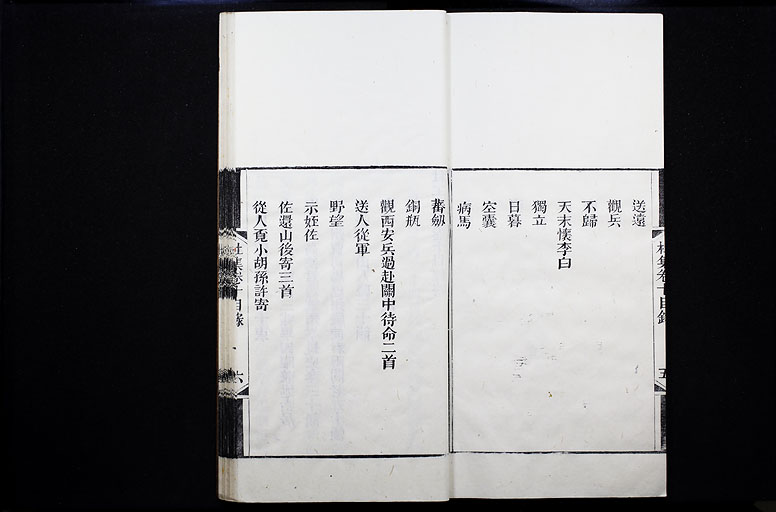 送遠
觀兵
不歸
天末懐李白
獨立
日暮
空囊
病馬
蕃劒
銅瓶
觀西安兵過赴關中待命二首
送人從軍
野望
示姪佐
佐還山後寄三首
從人覓小胡孫許寄
杜集卷十目錄
五
杜集卷十目錄
六